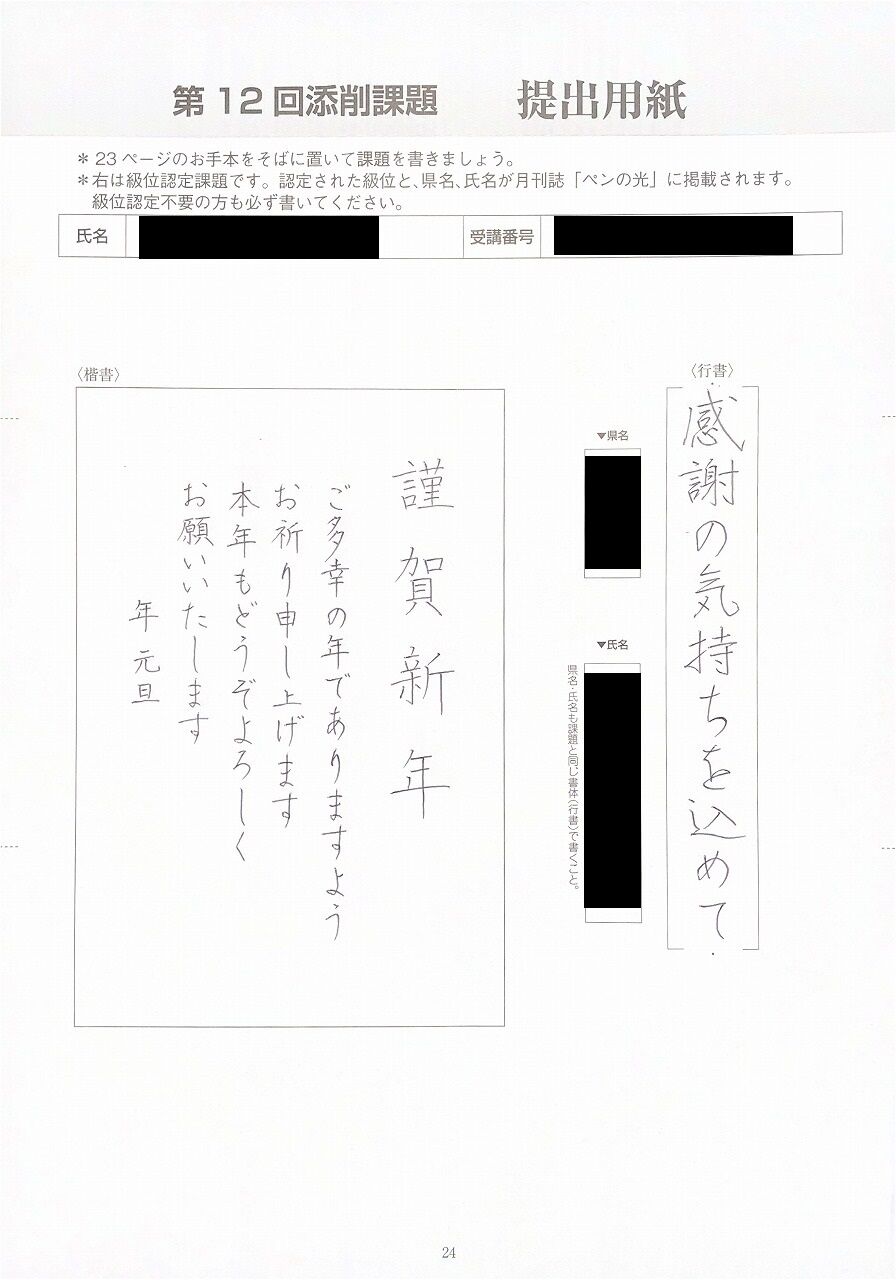 第12回添削課題 提出用紙
＊23ページのお手本をそばに置いて課題を書きましょう。
＊右は級位認定課題です。認定された級位と、県名、氏名が月刊誌「ペンの光」に掲載されます。
級位認定不要の方も必ず書いてください。
氏名
受講番号
〈行書〉
感謝の気持ちを込めて
▼県名
▼氏名
県名・氏名も課題と同じ書体（行書）で書くこと。
〈楷書〉
謹賀新年
ご多幸の年でありますよう
お祈り申し上げます
本年もどうぞよろしく
お願いいたします
年 元旦
24